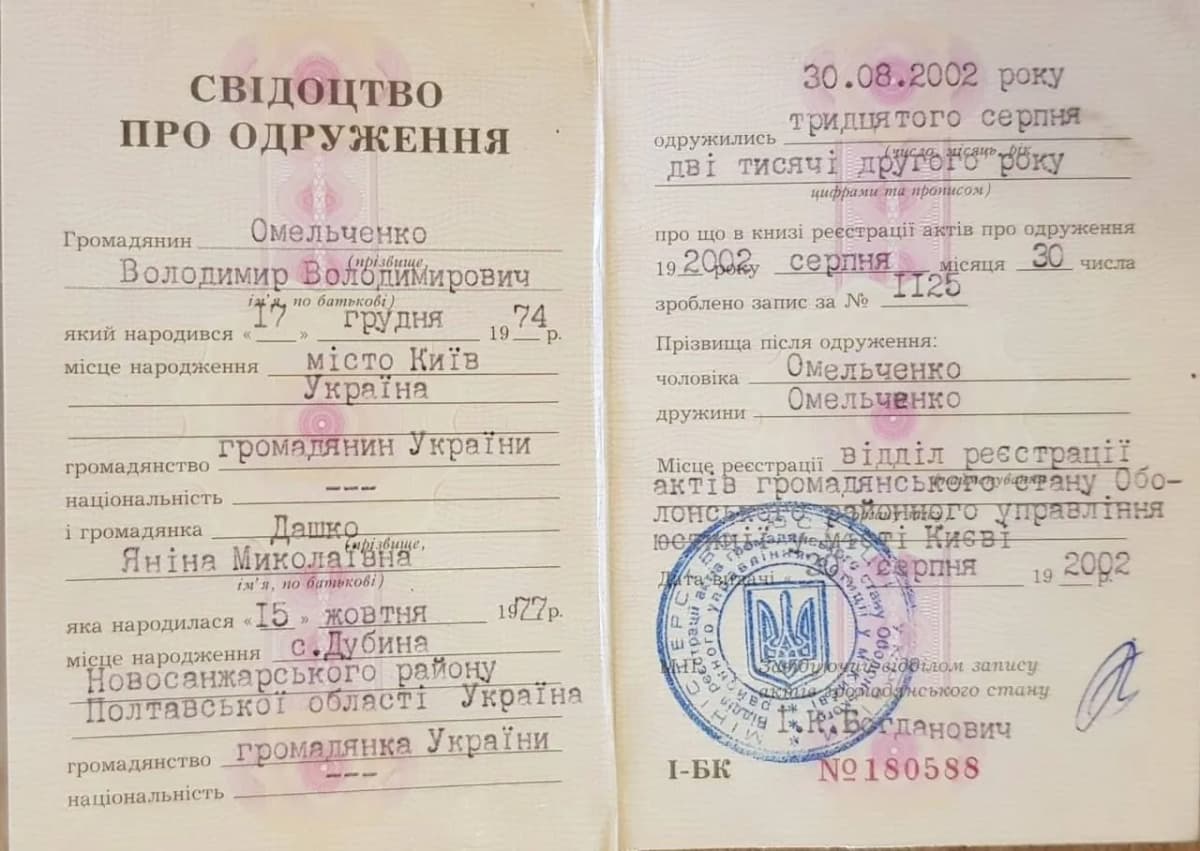 СВІДОЦТВО
ПРО ОДРУЖЕННЯ
Громадянин Омельченко
(прізвище,
Володимир Володимирович
ім'я, по батькові)
який народився «17» грудня 1974 р.
місце народження місто Київ
Україна
громадянство громадянин України
національність ---
і громадянка Дашко
(прізвище,
Яніна Миколаївна
ім'я, по батькові)
яка народилася «15» жовтня 1977р.
місце народження с.Дубина
Новосанжарського району
Полтавської області Україна
громадянство громадянка України
національність ---
30.08.2002 року
одружились тридцятого серпня
(число, місяць, рік
дві тисячі другого року
цифрами та прописом)
про що в книзі реєстрації актів про одруження
19 2002 року серпня місяця 30 числа
зроблено запис за № 1125
Прізвища після одруження:
чоловіка Омельченко
дружини Омельченко
Місце реєстрації відділ реєстрації
актів громадянського стану Обо-
лонського районного управління
юстиції у місті Києві
Дата видачі «30 серпня 19 2002 р.
М.П. Завідуючий відділом запису
актів громадянського стану
І.К.Богданович
І-БК №180588